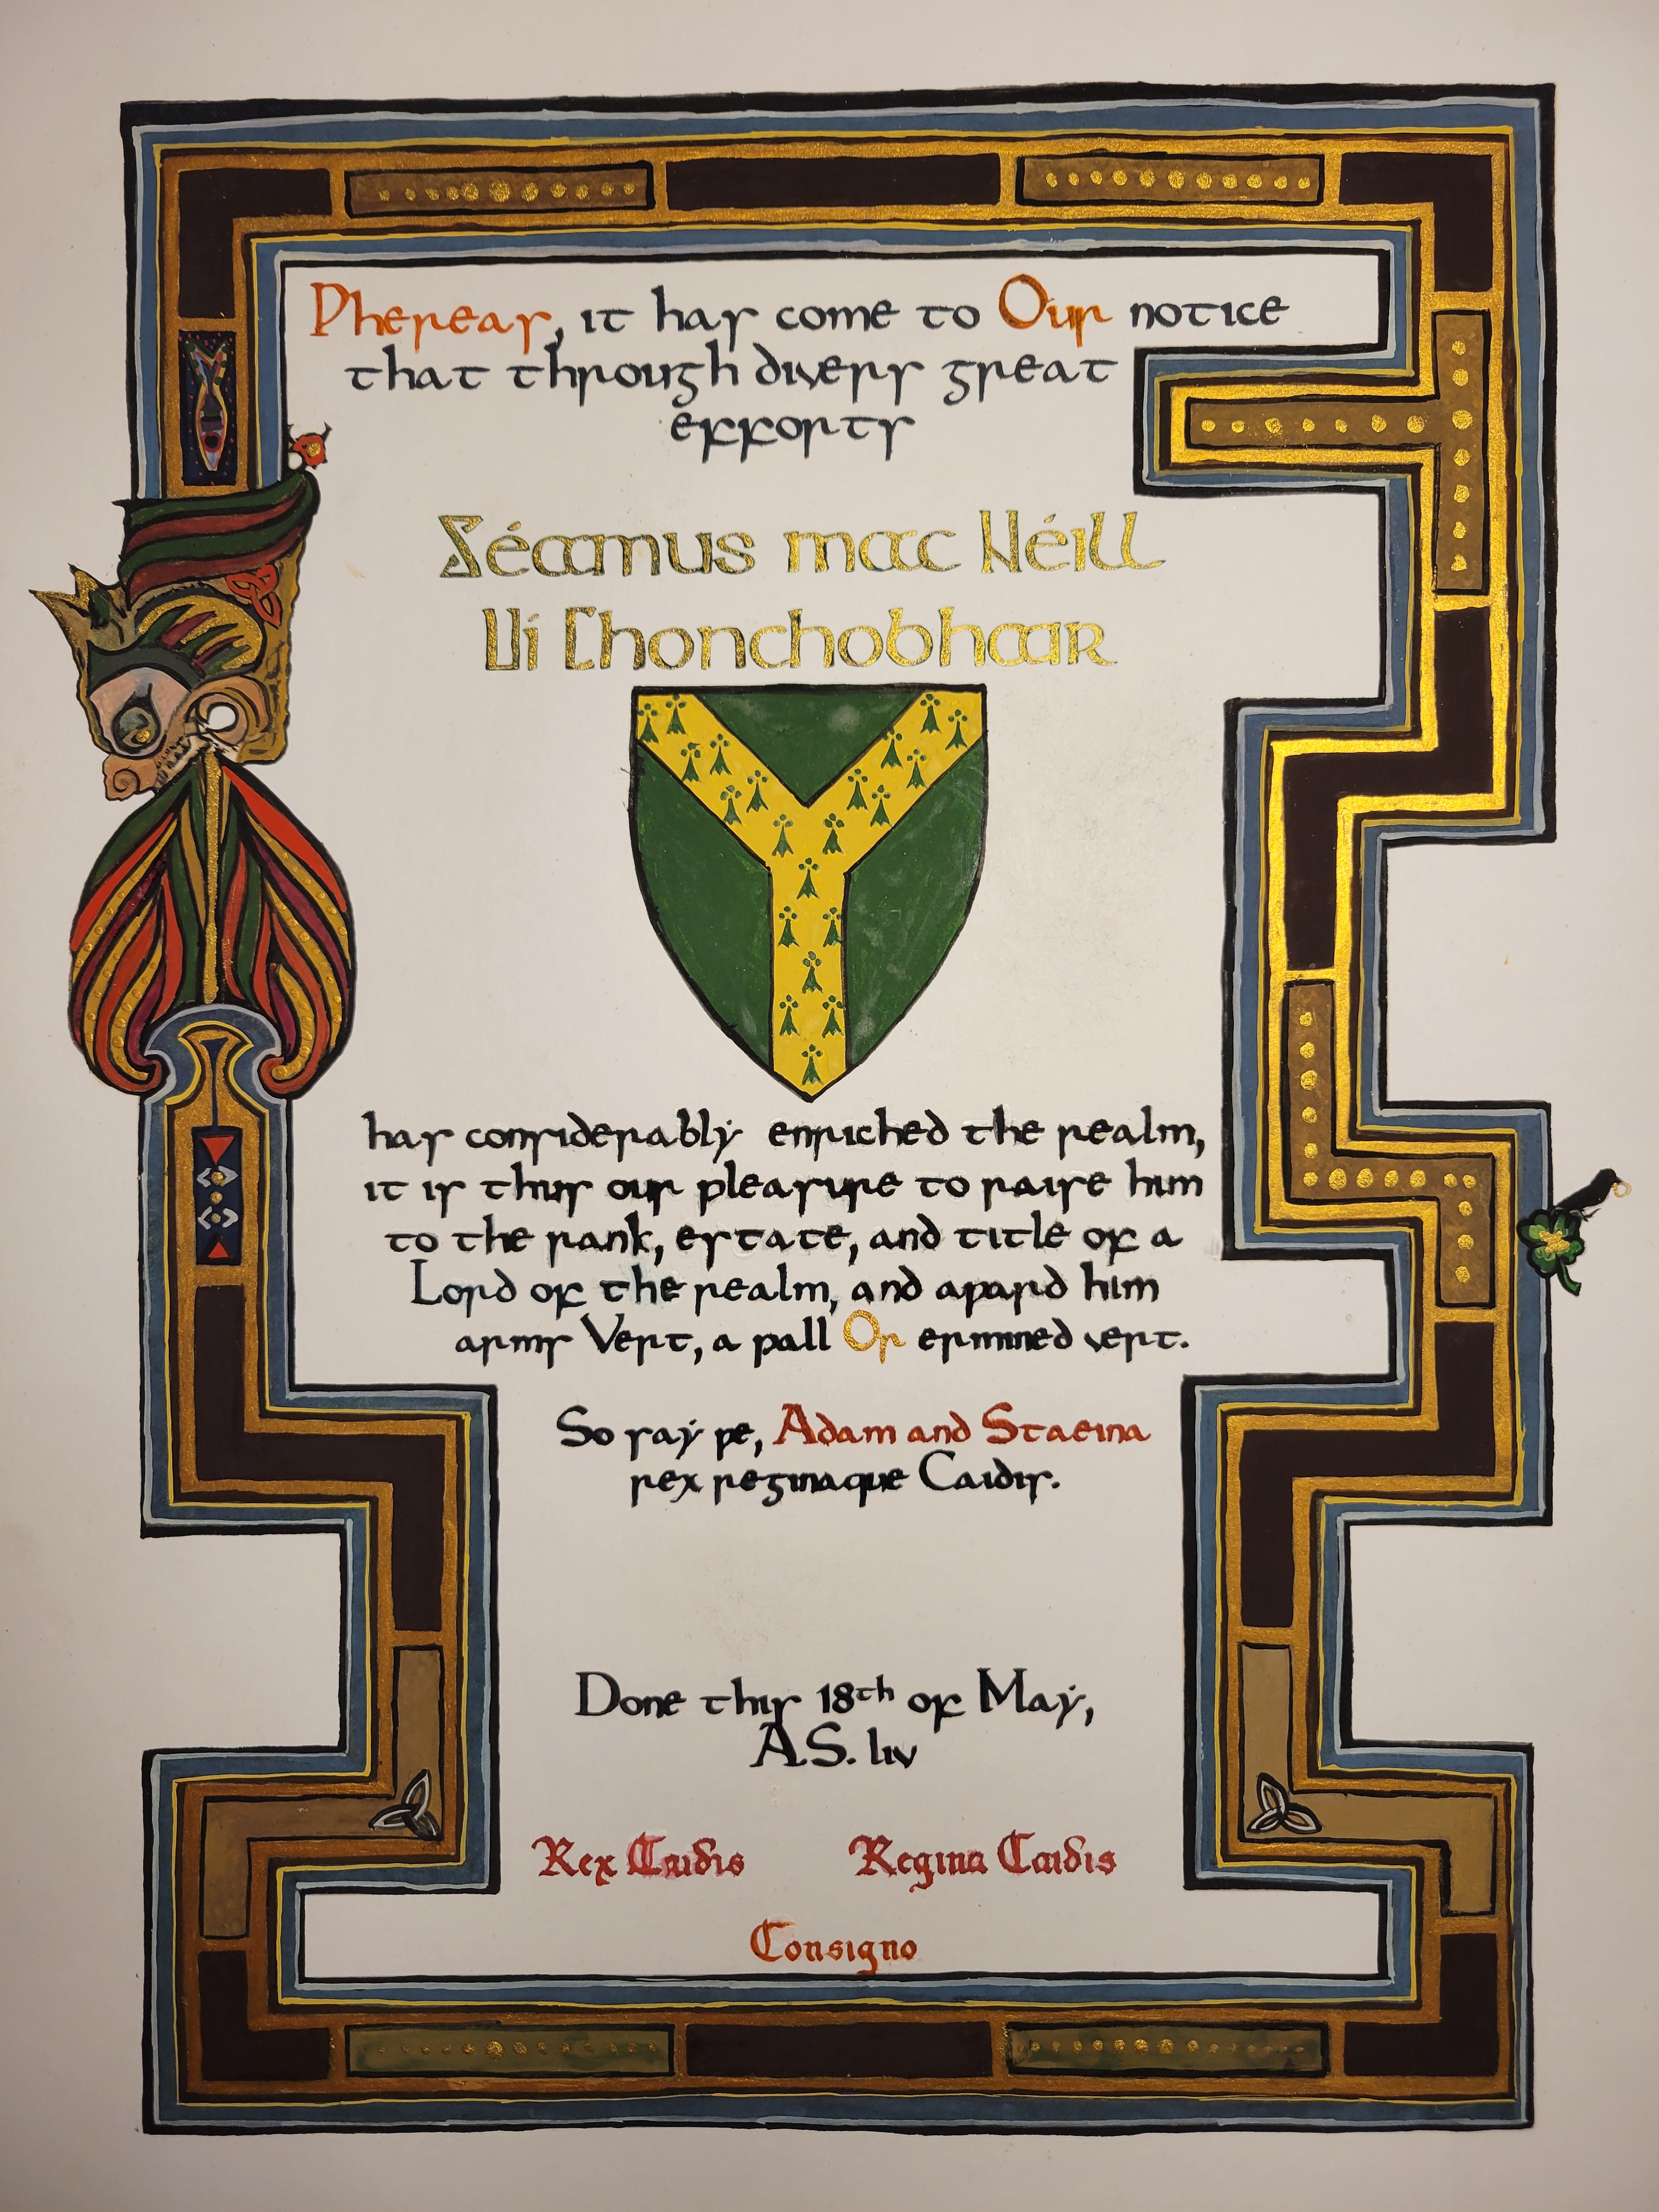 Ƿhereas, it has come to Our notice
that through divers great
efforts
Séamus mac Néill
Uí Chonchobhair
has considerably enriched the realm,
it is thus our pleasure to raise him
to the rank, estate, and title of a
Lord of the realm, and aƿard him
arms Vert, a pall Or ermined vert.
So say ƿe, Adam and Staeina
rex reginaque Caidis.
Done this 18th of May,
A.S. liv
Rex Caidis Regina Caidis
Consigno